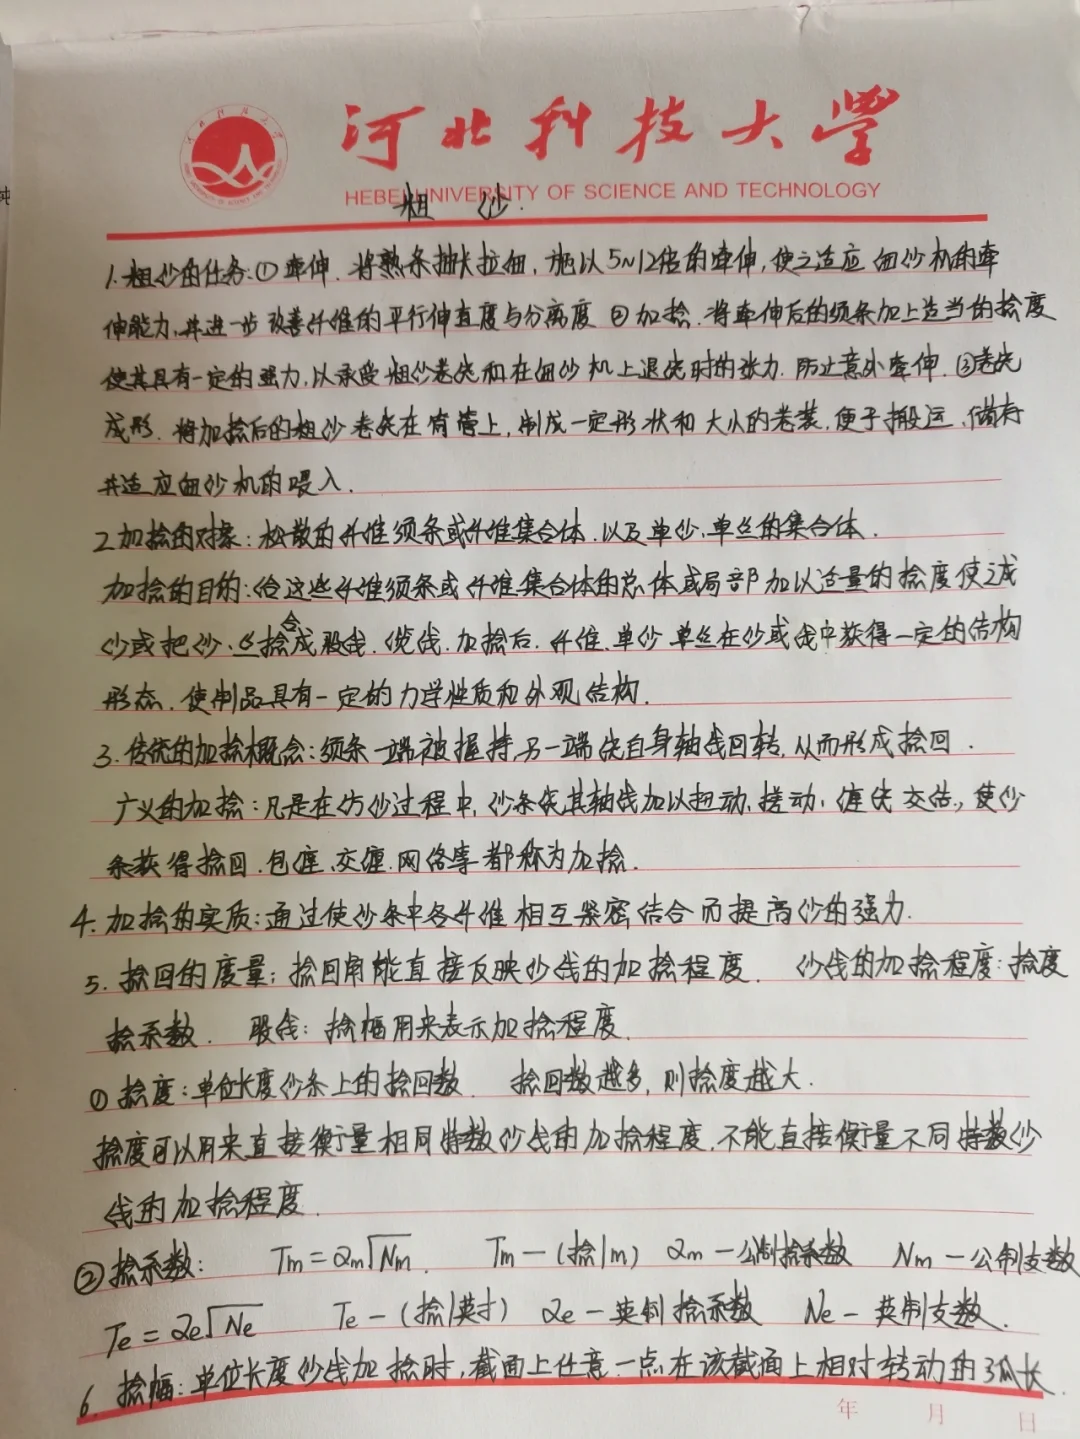 河北科技大学
HEBEI UNIVERSITY OF SCIENCE AND TECHNOLOGY
粗 纱.
1.粗纱的任务:①牵伸.将熟条抽长拉细,施以5~12倍的牵伸,使之适应细纱机的牵
伸能力,并进一步改善纤维的平行伸直度与分离度 ②加捻.将牵伸后的须条加上适当的捻度
使其具有一定的强力,以承受粗纱卷绕和在细纱机上退绕时的张力.防止意外牵伸.③卷绕
成形.将加捻后的粗纱卷绕在筒管上,制成一定形状和大小的卷装,便于搬运、储存
并适应细纱机的喂入.
2.加捻的对象:松散的纤维须条或纤维集合体.以及单纱、单丝的集合体.
加捻的目的:给这些纤维须条或纤维集合体的总体或局部加以适量的捻度使之成
纱或把纱、丝捻合成股线.缆线.加捻后.纤维.单纱单丝在纱或线中获得一定的结构
形态.使制品具有一定的力学性质和外观结构.
3.传统的加捻概念:须条一端被握持,另一端绕自身轴线回转,从而形成捻回.
广义的加捻:凡是在纺纱过程中,纱条绕其轴线加以扭动、搓动、缠绕交结,使纱
条获得捻回.包缠、交缠.网络等都称为加捻.
4.加捻的实质:通过使纱条中各纤维相互紧密结合而提高纱的强力.
5.捻回的度量:捻回角能直接反映纱线的加捻程度. 纱线的加捻程度:捻度
捻系数. 股线:捻幅用来表示加捻程度.
①捻度:单位长度纱条上的捻回数. 捻回数越多,则捻度越大.
捻度可以用来直接衡量相同特数纱线的加捻程度.不能直接衡量不同特数纱
线的加捻程度.
②捻系数: Tm=αm√Nm. Tm—(捻/m) αm—公制捻系数 Nm—公制支数
Te=αe√Ne Te—(捻/英寸) αe—英制捻系数 Ne—英制支数.
6.捻幅:单位长度纱线加捻时,截面上任意一点在该截面上相对转动的弧长.
年 月 日